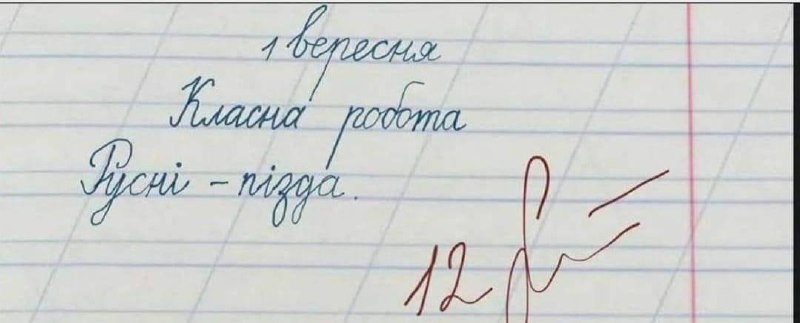 1 вересня
Класна робота
Русні – пізда.
12